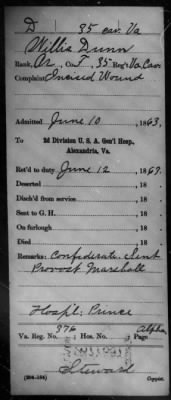 D 35 cav. Va
Willis Dunn
Rank, Pr, Co. F, 35 Reg't Va Cav
Complaint Incised Wound
Admitted June 10, 1863,
To 2d Division U. S. A. Gen'l Hosp.,
Alexandria, Va.
Ret'd to duty June 12, 1863.
Deserted , 18
Disch'd from service , 18
Sent to G. H. , 18
On furlough , 18
Died , 18
Remarks: Confederate. Sent
Provost Marshall
Hospl: Prince
Va. Reg. No. 376 Hos. No. Page Alpha
Steward
(254-184) Copyist.